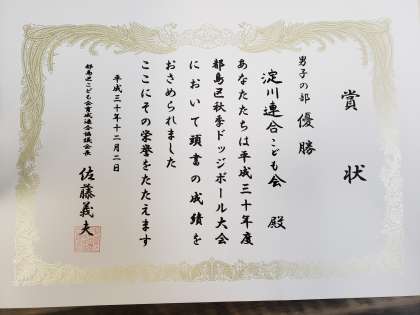 賞状
男子の部 優勝
淀川連合こども会 殿
あなたたちは平成三十年度
都島区秋季ドッジボール大会
において頭書の成績を
おさめられました
ここにその栄誉をたたえます
平成三十年十二月二日
都島区こども会育成連合協議会長
佐藤義夫